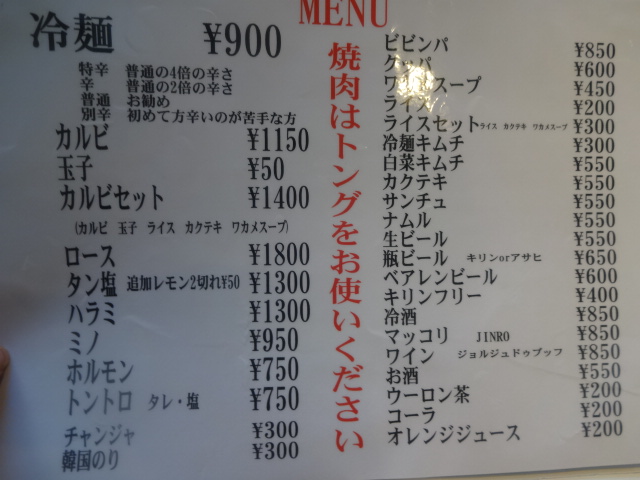 MENU
冷麺 ¥900
特辛 普通の4倍の辛さ
辛 普通の2倍の辛さ
普通 お勧め
別辛 初めて方辛いのが苦手な方
カルビ ¥1150
玉子 ¥50
カルビセット ¥1400
(カルビ 玉子 ライス カクテキ ワカメスープ)
ロース ¥1800
タン塩 追加レモン2切れ¥50 ¥1300
ハラミ ¥1300
ミノ ¥950
ホルモン ¥750
トントロ タレ・塩 ¥750
チャンジャ ¥300
韓国のり ¥300
焼肉はトングをお使いください
ビビンパ ¥850
クッパ ¥600
ワカメスープ ¥450
ライス ¥200
ライスセット ライス カクテキ ワカメスープ ¥300
冷麺キムチ ¥300
白菜キムチ ¥550
カクテキ ¥550
サンチュ ¥550
ナムル ¥550
生ビール ¥550
瓶ビール キリンorアサヒ ¥650
ベアレンビール ¥600
キリンフリー ¥400
冷酒 ¥850
マッコリ JINRO ¥850
ワイン ジョルジュドゥブッフ ¥850
お酒 ¥550
ウーロン茶 ¥200
コーラ ¥200
オレンジジュース ¥200